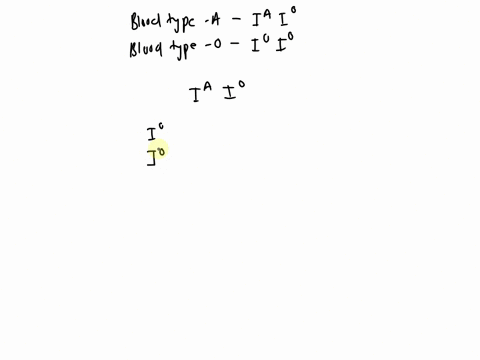 Blood type -A - I^A I^O
Blood type -O - I^O I^O
I^A I^O
I^O
I^O